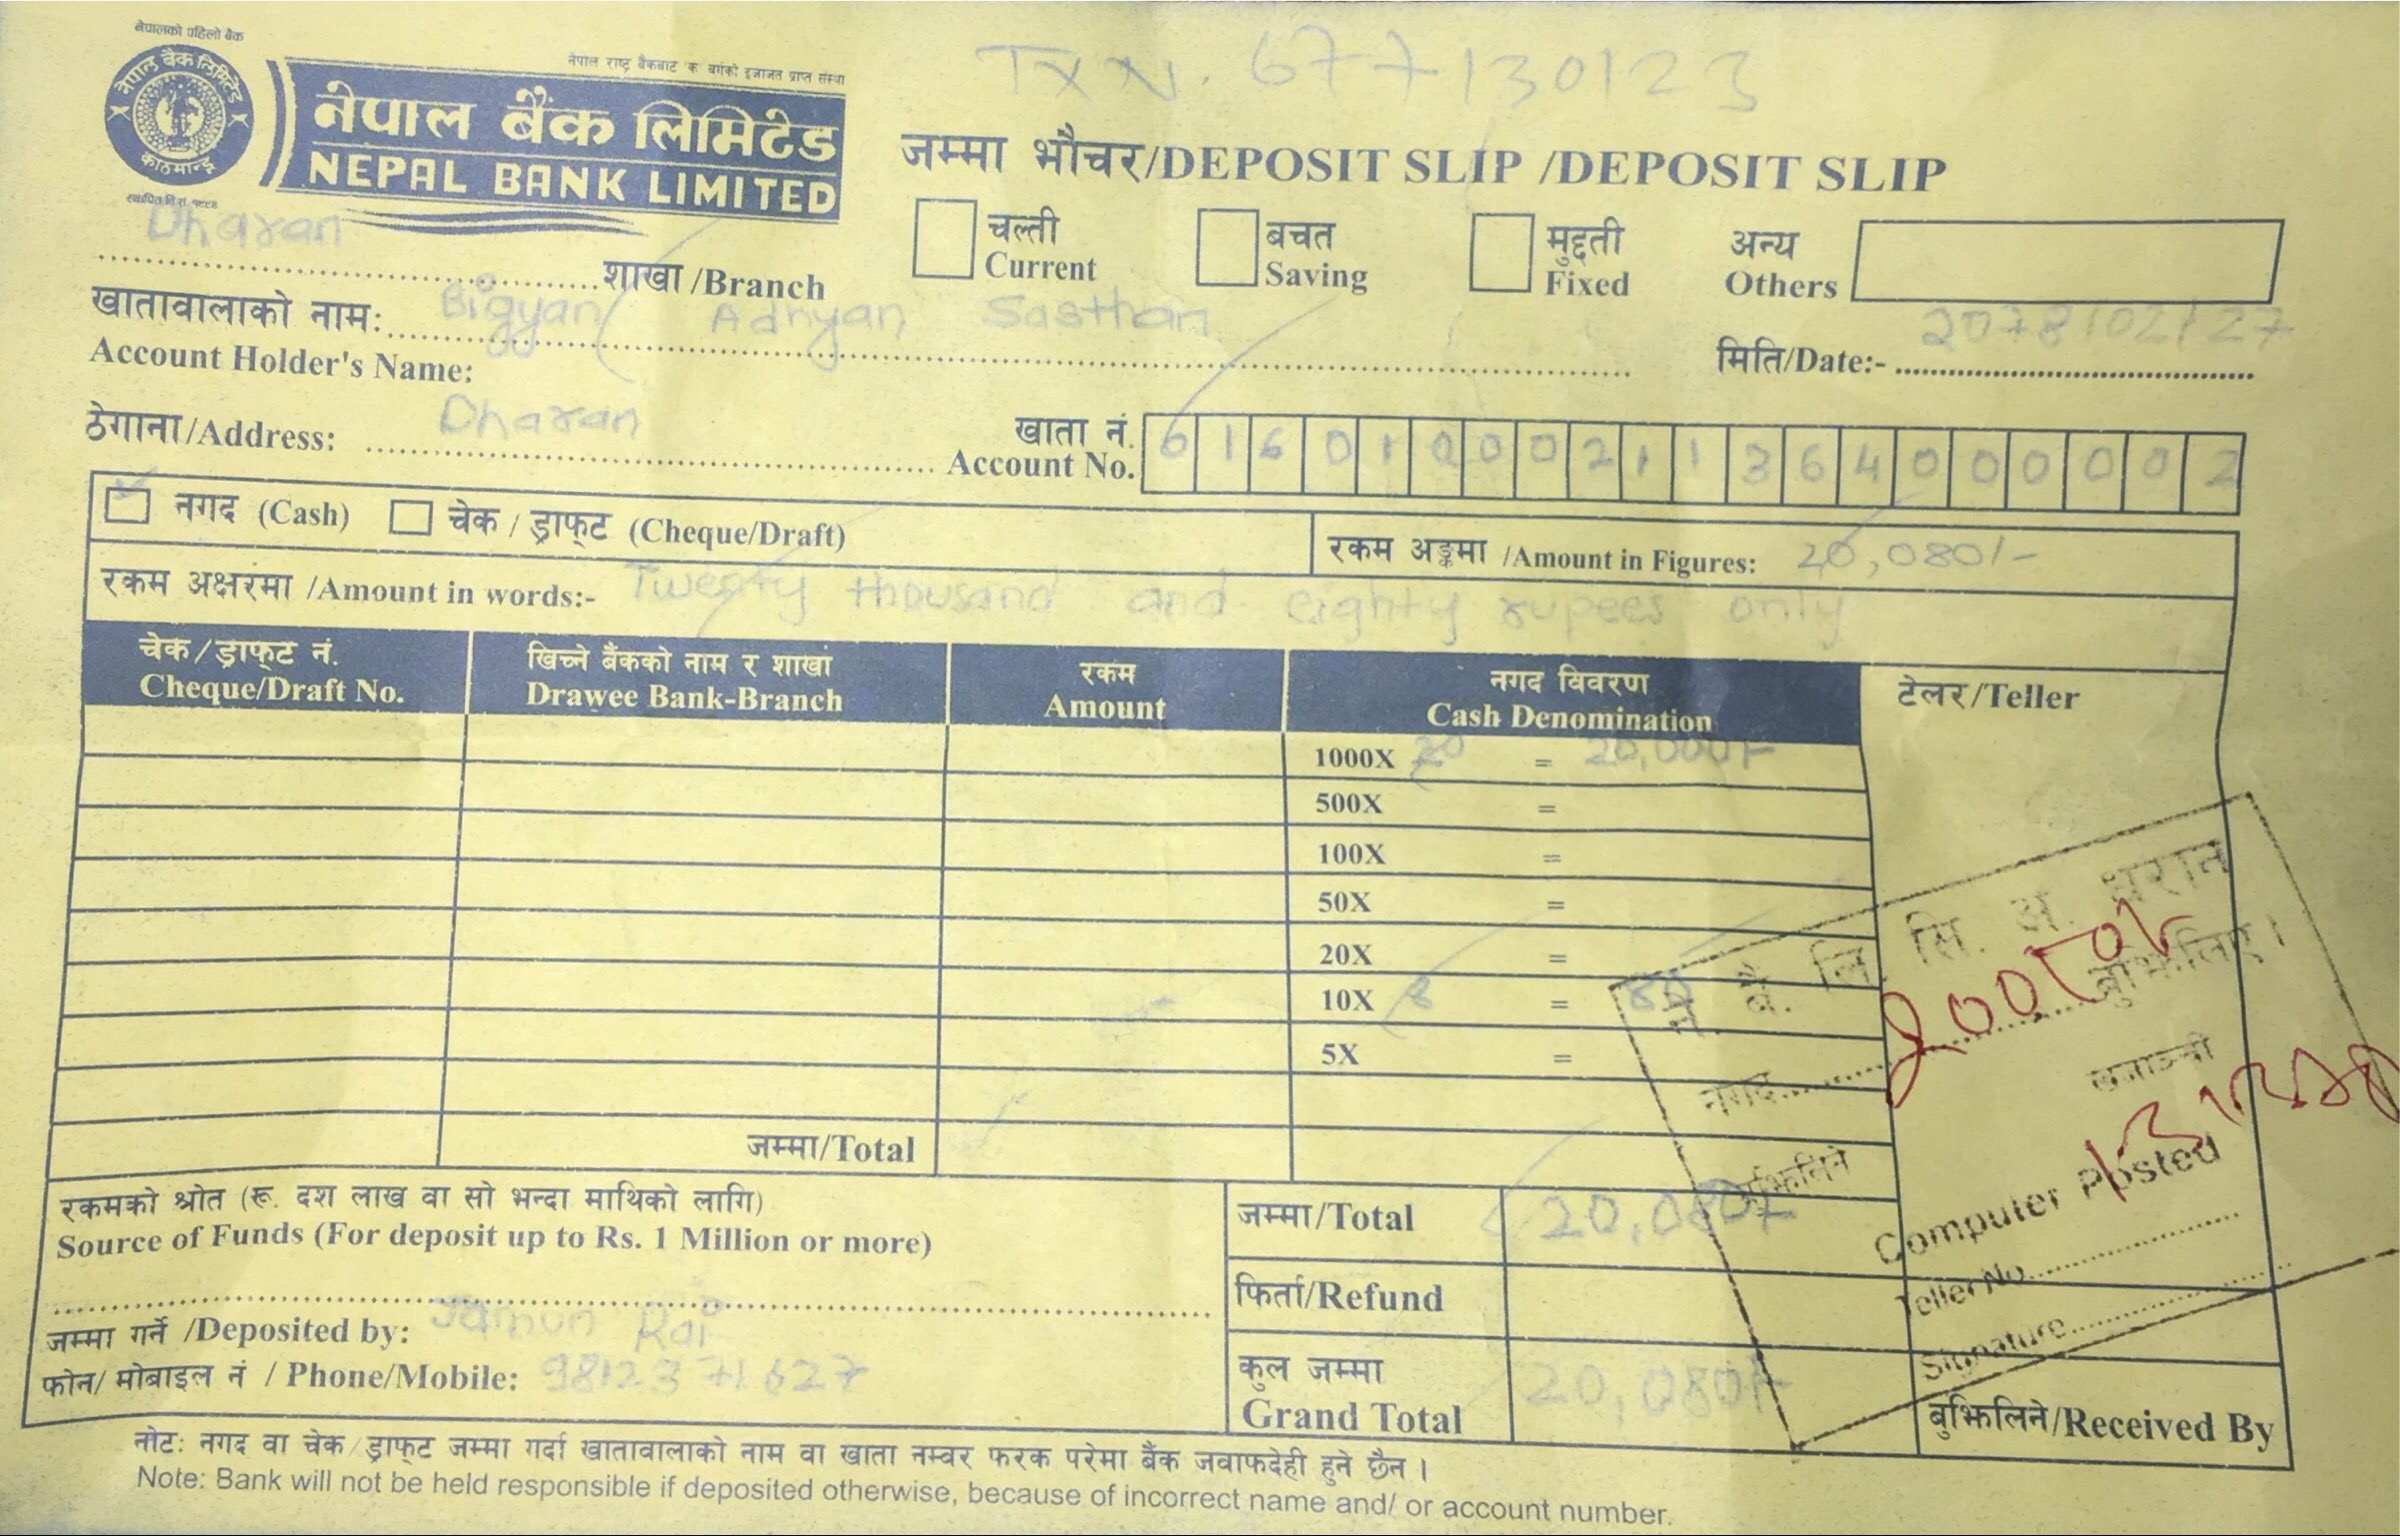 नेपालको पहिलो बैंक
TXN. 677130123
नेपाल राष्ट्र बैंकबाट 'क' वर्गको इजाजत प्राप्त संस्था
नेपाल बैंक लिमिटेड
काठमान्डू
नेपाल बैंक लिमिटेड
NEPAL BANK LIMITED
स्थापित वि.सं. १९९४
जम्मा भौचर/DEPOSIT SLIP /DEPOSIT SLIP
Dharan
शाखा /Branch
चल्ती
Current
बचत
Saving
मुद्दती
Fixed
अन्य
Others
खातावालाको नाम: Bigyan Adhyan Sasthan
Account Holder's Name:
मिति/Date:- 2078/02/27
ठेगाना/Address: Dharan
खाता नं.
Account No. 6 1 6 0 1 0 0 0 2 1 1 3 6 4 0 0 0 0 0 2
नगद (Cash) चेक / ड्राफ्ट (Cheque/Draft)
रकम अङ्कमा /Amount in Figures: 20,080/-
रकम अक्षरमा /Amount in words:- Twenty thousand and eighty rupees only
चेक/ड्राफ्ट नं.
Cheque/Draft No.
खिच्ने बैंकको नाम र शाखा
Drawee Bank-Branch
रकम
Amount
नगद विवरण
Cash Denomination
टेलर/Teller
1000X 20 = 20,000/-
500X =
100X =
50X =
20X =
10X 8 = 80
5X =
ने. बै. लि. सि. अ. धरान
नगद.......... बुझिलिए।
खजाञ्ची
बुझिलिने
Computer Posted
Teller No..........
Signature..........
जम्मा/Total
रकमको श्रोत (रू. दश लाख वा सो भन्दा माथिको लागि)
Source of Funds (For deposit up to Rs. 1 Million or more)
जम्मा/Total 20,080/-
फिर्ता/Refund
जम्मा गर्ने /Deposited by: Jamun Rai
फोन/ मोबाइल नं / Phone/Mobile: 9812371627
कुल जम्मा
Grand Total 20,080/-
बुझिलिने/Received By
नोट: नगद वा चेक/ड्राफ्ट जम्मा गर्दा खातावालाको नाम वा खाता नम्बर फरक परेमा बैंक जवाफदेही हुने छैन ।
Note: Bank will not be held responsible if deposited otherwise, because of incorrect name and/ or account number.